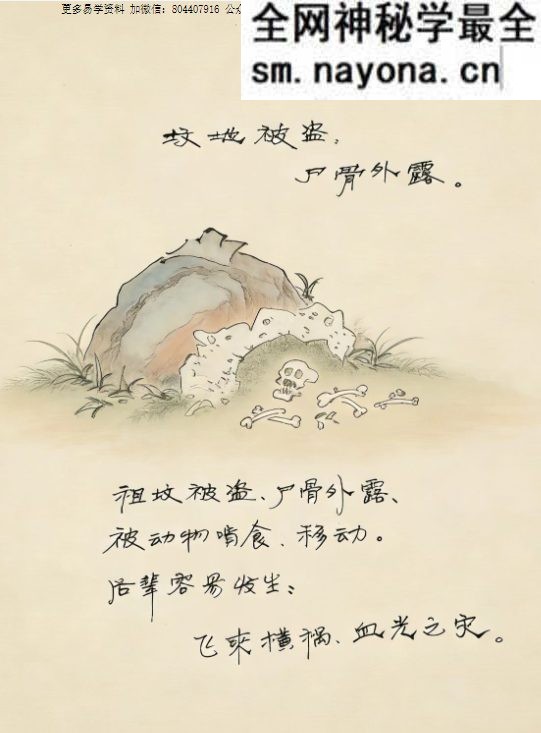 更多易学资料 加微信：804407916 公众
全网神秘学最全
sm.nayona.cn
坟地被盗，
尸骨外露。
祖坟被盗、尸骨外露、
被动物啃食、移动。
后辈容易发生：
飞来横祸、血光之灾。